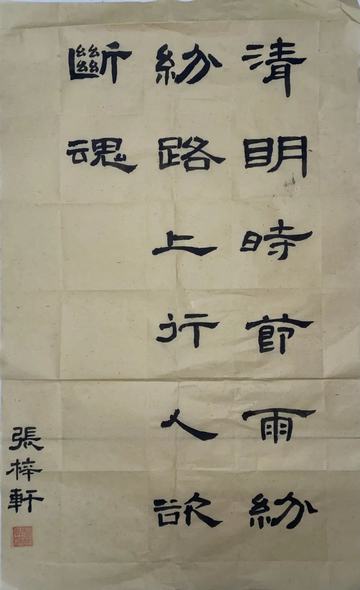 清明時節雨紛
紛路上行人欲
斷魂
張梓軒